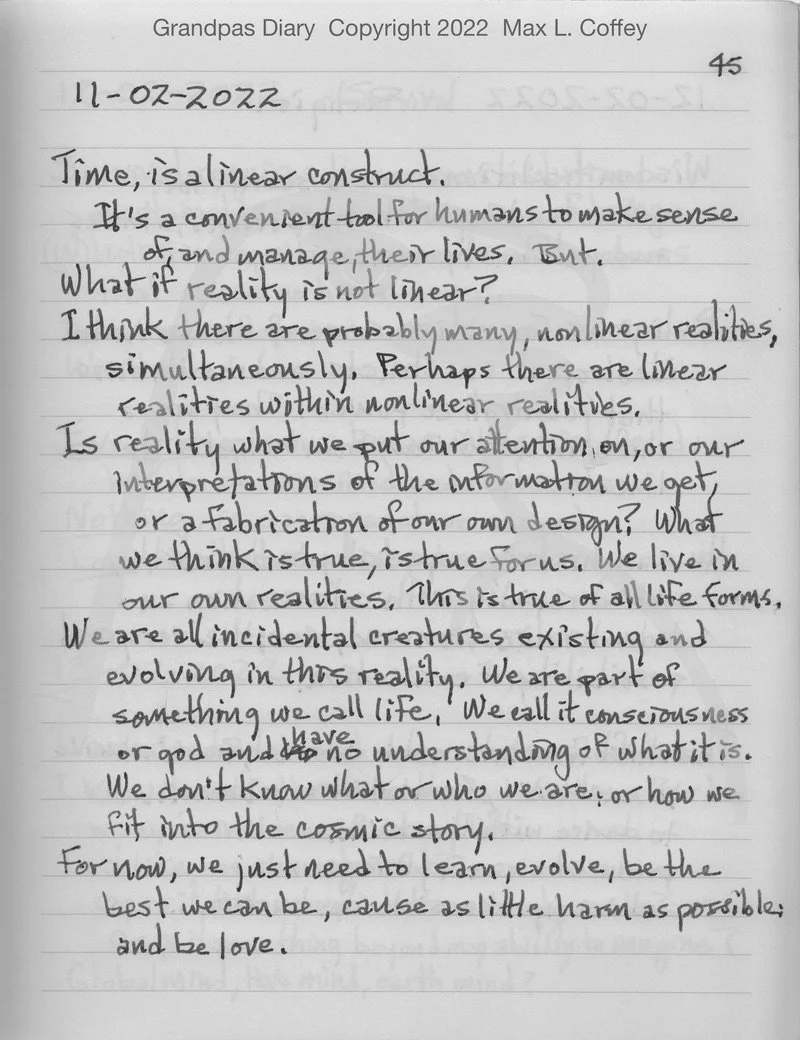 Grandpas Diary Copyright 2022 Max L. Coffey
45
11-02-2022
Time, is a linear construct.
It's a convenient tool for humans to make sense
of, and manage, their lives. But.
What if reality is not linear?
I think there are probably many, nonlinear realities,
simultaneously. Perhaps there are linear
realities within nonlinear realities.
Is reality what we put our attention on, or our
interpretations of the information we get,
or a fabrication of our own design? What
we think is true, is true for us. We live in
our own realities. This is true of all life forms.
We are all incidental creatures existing and
evolving in this reality. We are part of
something we call life. We call it consciousness
have
or god and no understanding of what it is.
We don't know what or who we are; or how we
fit into the cosmic story.
For now, we just need to learn, evolve, be the
best we can be, cause as little harm as possible;
and be love.
Global mind, mind, earth mind?